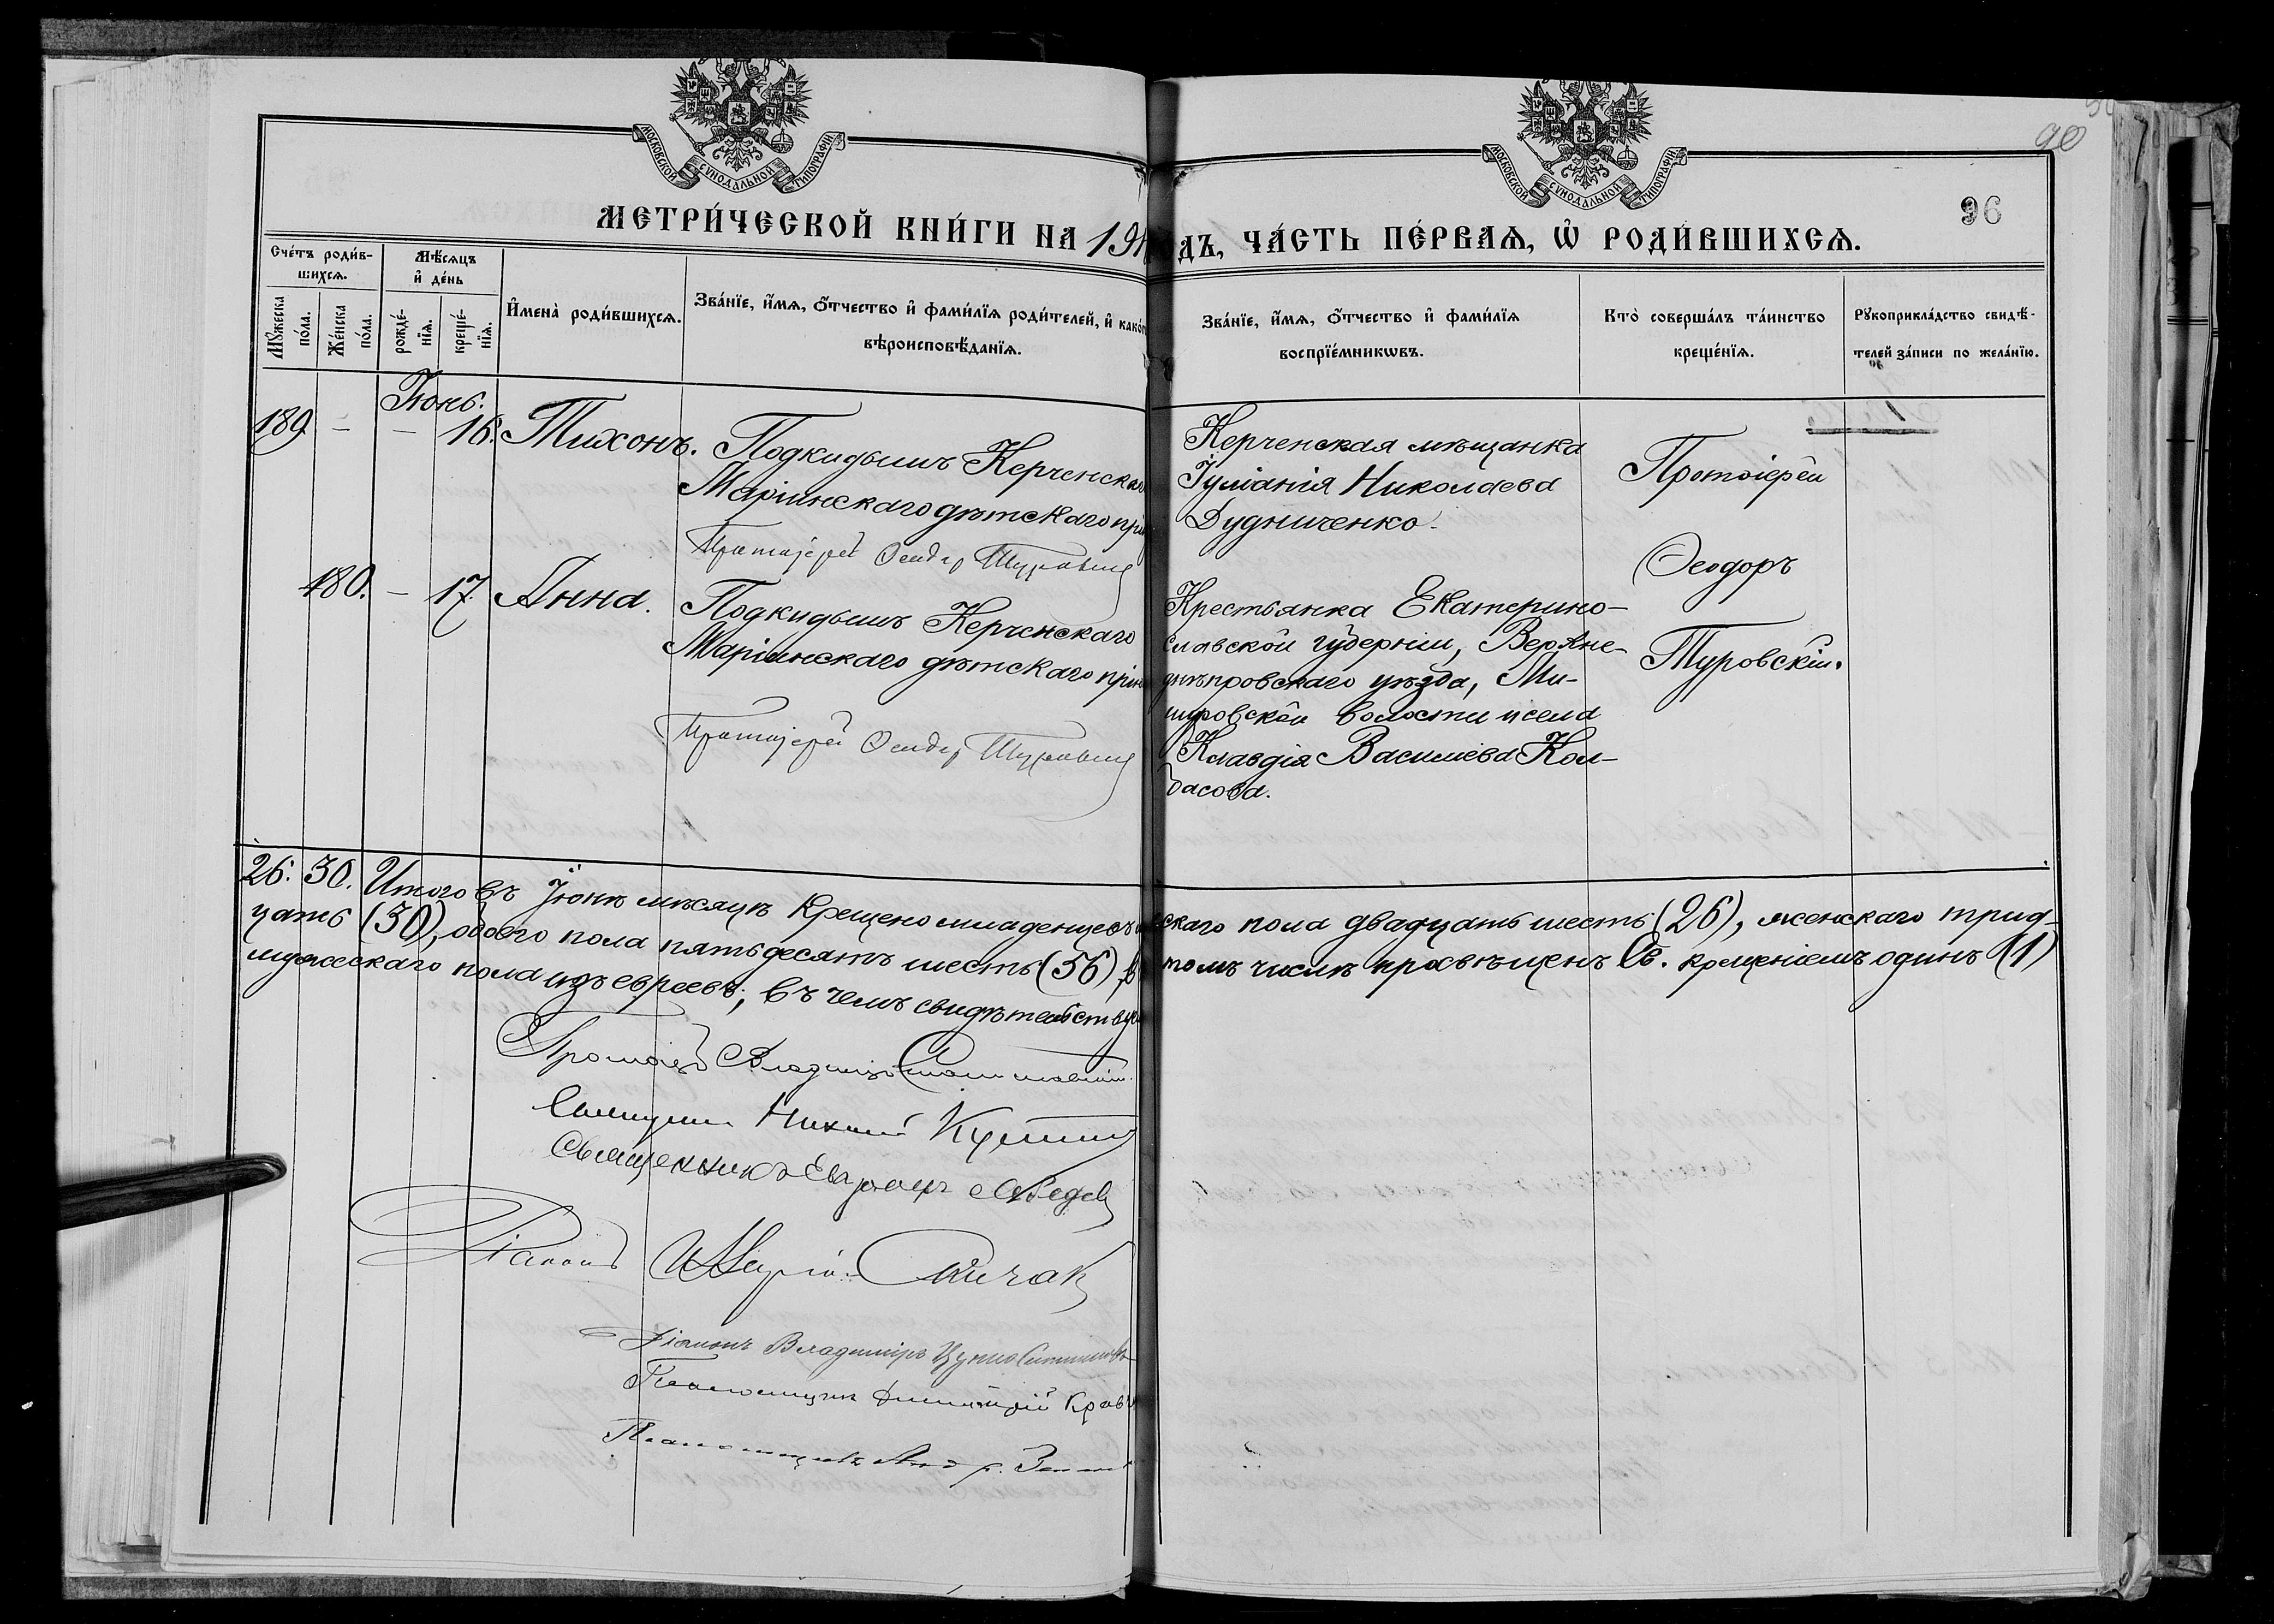 90
96
МОСКОВСКОЙ СѴНОДАЛЬНОЙ ТИПОГРАФІИ
МОСКОВСКОЙ СѴНОДАЛЬНОЙ ТИПОГРАФІИ
МЕТРИ́ЧЕСКОЙ КНИ́ГИ НА 191
ДЪ, ЧА́СТЬ ПЕ́РВАѦ, Ѡ҆ РОДИ́ВШИХСѦ.
Сче́тъ роди́в-
шихсѧ.
Мѣ́сѧцъ
и҆ де́нь
Мꙋ́жеска
по́ла.
Же́нска
по́ла.
рожде́-
нїѧ.
креще́-
нїѧ.
И҆мена̀ роди́вшихсѧ.
Зва́нїе, и҆́мѧ, ѻ҆́тчество и҆ фами́лїѧ роди́телей, и҆ како́г
вѣроисповѣ́данїѧ.
Зва́нїе, и҆́мѧ, ѻ҆́тчество и҆ фами́лїѧ
воспрїе́мникѡвъ.
Кто̀ соверша́лъ та́инство
креще́нїѧ.
Рꙋкоприкла́дство свидѣ́-
телей за́писи по жела́нїю.
Іюнь.
189 - - 16. Тихонъ.
Подкидышъ Керченскаго
Маріинскаго дѣтскаго прі
Протоіерей Ѳеодоръ Туровскій
Керченская мѣщанка
Іуліанія Николаева
Дудниченко.
Протоіерей
Ѳеодоръ
Туровскій.
180. - 17. Анна.
Подкидышъ Керченскаго
Маріинскаго дѣтскаго прію
Протоіерей Ѳеодоръ Туровскій
Крестьянка Екатерино-
славской губерніи, Верхне-
днѣпровскаго уѣзда, Ми-
шуровской волости и села
Клавдія Васильева Кол-
басова.
26. 30. Итого въ Іюнѣ мѣсяцѣ крещено младенцевъ ескаго пола двадцать шесть (26), женскаго трид-
цать (30), обоего пола пятьдесятъ шесть (56), въ томъ числѣ просвѣщенъ Св. крещеніемъ одинъ (1)
мужескаго пола изъ евреевъ; въ чемъ свидѣтельствую
Протоіер Владиміръ
Священникъ
Священникъ
Діаконъ
Діаконъ Владиміръ
Псаломщикъ Димитрій Крав
Псаломщикъ